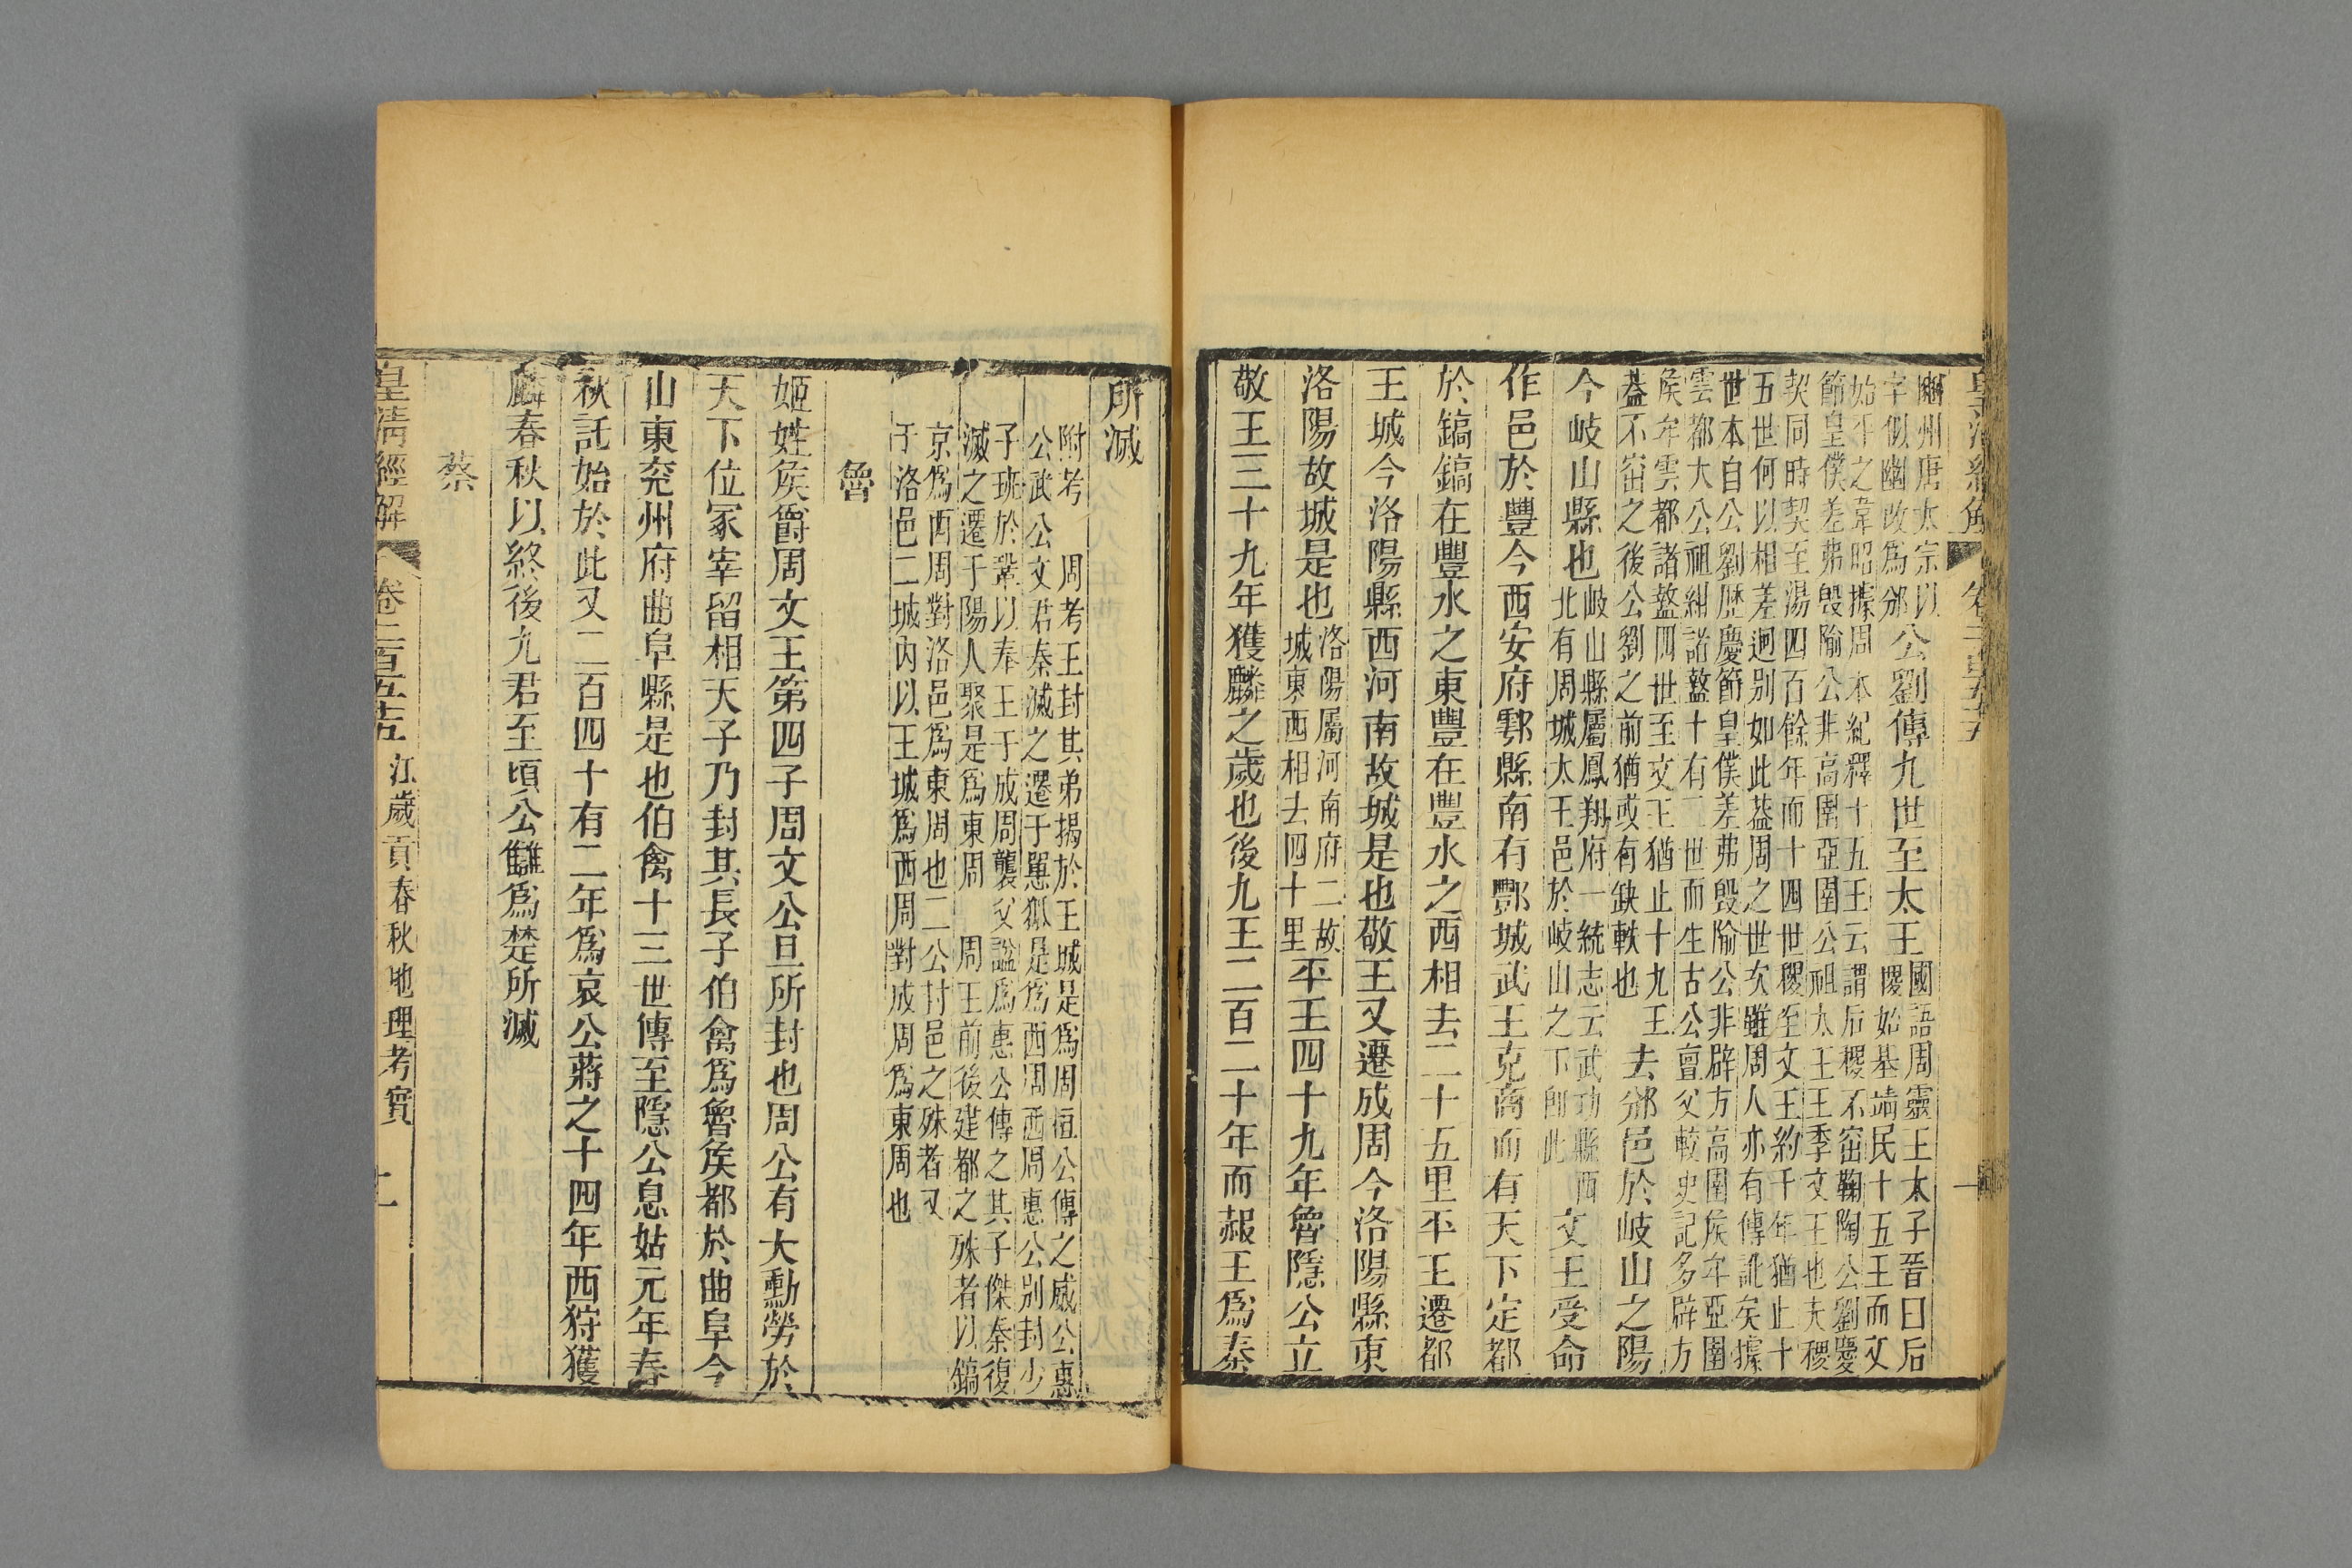 皇清經解　卷二百五十五　一
豳州唐太宗以
字似幽改爲邠
公劉傳九世至太王
國語周靈王太子晉曰后
稷始基靖民十五王而文
始平之韋昭據周本紀釋十五王云謂后稷不窋鞠陶公劉慶
節皇僕差弗毀隃公非高圉亞圉公祖太王王季文王也夫稷
契同時契至湯四百餘年而十四世稷至文王約千年猶止十
五世何以相差迥别如此葢周之世次雖周人亦有傳訛矣據
世本自公劉歷慶節皇僕差弗毀隃公非辟方高圉侯牟亞圉
雲都大公祖紺諸盩十有二世而生古公亶父較史記多辟方
侯牟雲都諸盩四世至文王猶止十九王
葢不窋之後公劉之前猶或有缺軼也
去邠邑於岐山之陽
今岐山縣也
岐山縣屬鳳翔府一統志云武功縣西
北有周城太王邑於岐山之下卽此
文王受命
作邑於豐今西安府鄠縣南有酆城武王克商而有天下定都
於鎬鎬在豐水之東豐在豐水之西相去二十五里平王遷都
王城今洛陽縣西河南故城是也敬王又遷成周今洛陽縣東
洛陽故城是也
洛陽屬河南府二故
城東西相去四十里
平王四十九年魯隱公立
敬王三十九年獲麟之歲也後九王二百二十年而赧王爲秦
所滅
附考　周考王封其弟揭於王城是爲周桓公傳之威公惠
公武公文君秦滅之遷于㒹狐是爲西周西周惠公别封少
子班於鞏以奉王于成周襲父謚爲惠公傳之其子傑秦復
滅之遷于陽人聚是爲東周　周王前後建都之殊者以鎬
京爲西周對洛邑爲東周也二公封邑之殊者又
于洛邑二城内以王城爲西周對成周爲東周也
魯
姬姓侯爵周文王第四子周文公旦所封也周公有大勳勞於
天下位冢宰留相天子乃封其長子伯禽爲魯侯都於曲阜今
山東兖州府曲阜縣是也伯禽十三世傳至隱公息姑元年春
秋託始於此又二百四十有二年爲哀公蔣之十四年西狩獲
麟春秋以終後九君至頃公讎爲楚所滅
蔡
皇清經解　卷二百五十五　江歲貢春秋地理考實　二